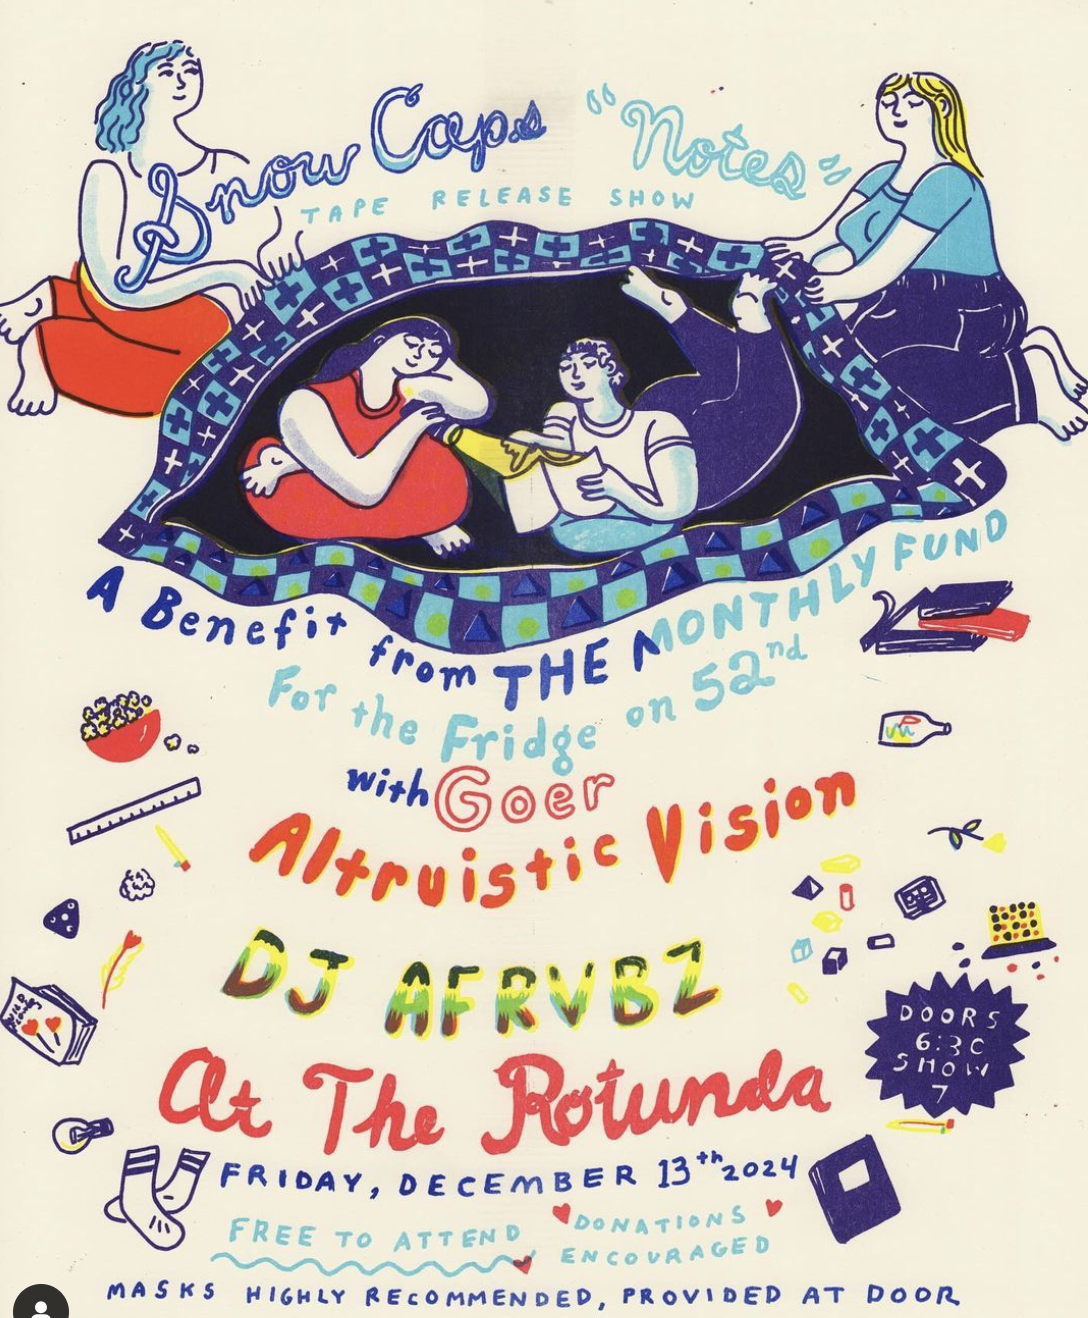 Snow Caps "Notes"
TAPE RELEASE SHOW
A Benefit from THE MONTHLY FUND
For the Fridge on 52nd
with Goer
Altruistic Vision
DJ AFRVBZ
At The Rotunda
DOORS
6:30
SHOW
7
FRIDAY, DECEMBER 13th 2024
FREE TO ATTEND
DONATIONS
ENCOURAGED
MASKS HIGHLY RECOMMENDED, PROVIDED AT DOOR